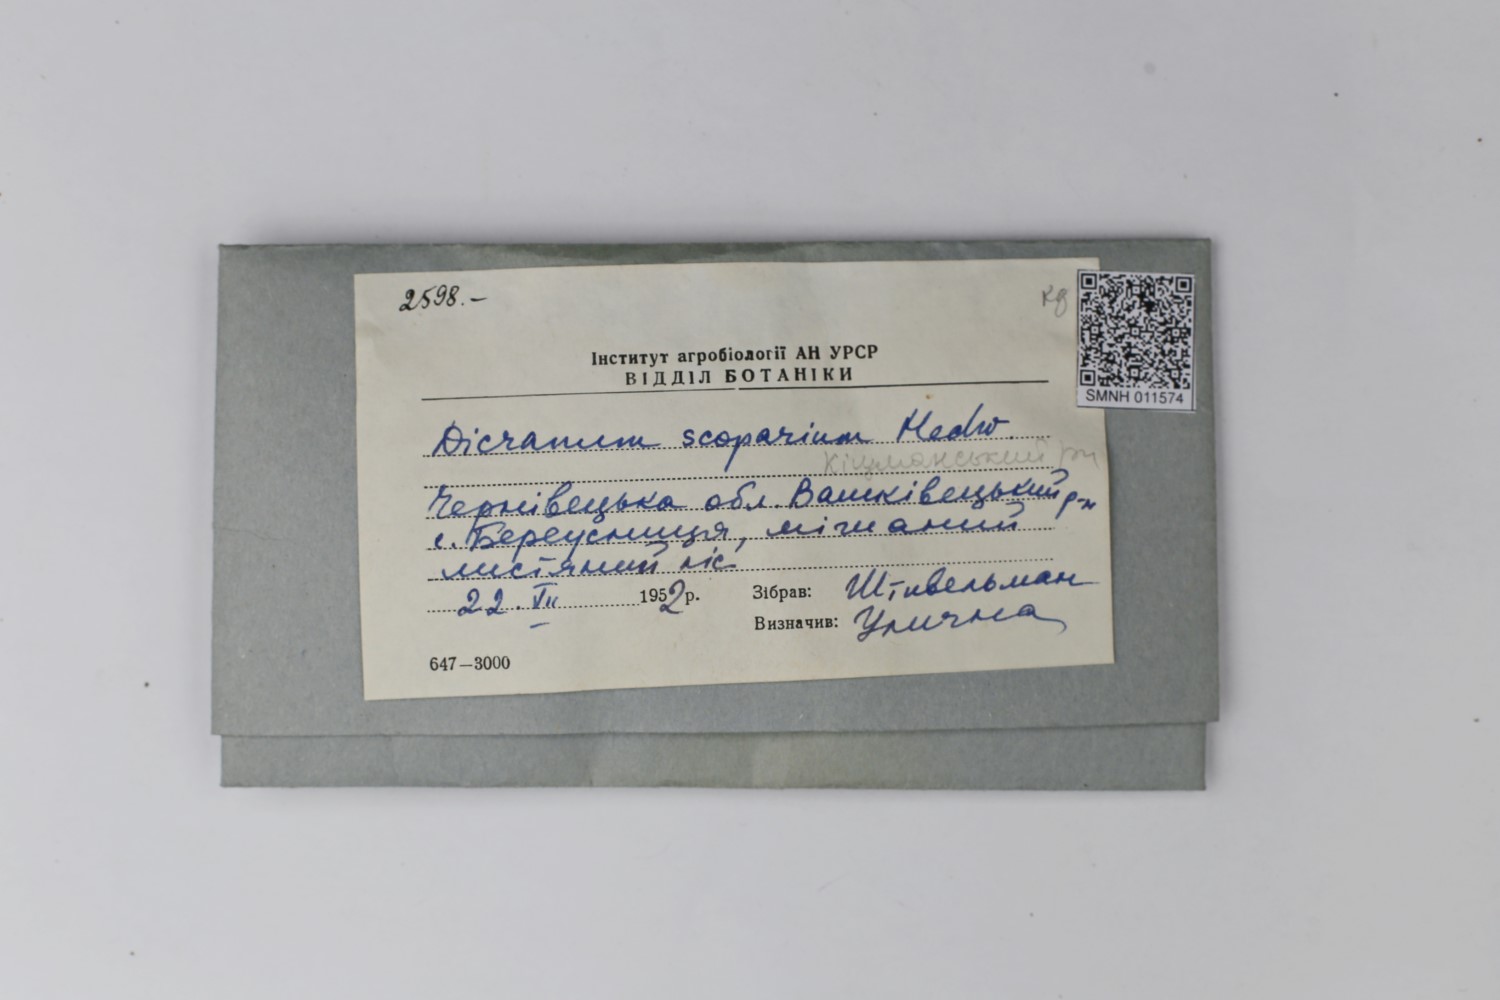 2598.-
Інститут агробіології АН УРСР
ВІДДІЛ БОТАНІКИ
SMNH 011574
Dicranum scoparium Hedw.
Кіцманський рн
Чернівецька обл. Вашківецький р-н
с. Береусниця, мішаний
листяний ліс
22. VII 1952р. Зібрав: Штівельман
Визначив: Улична
647—3000